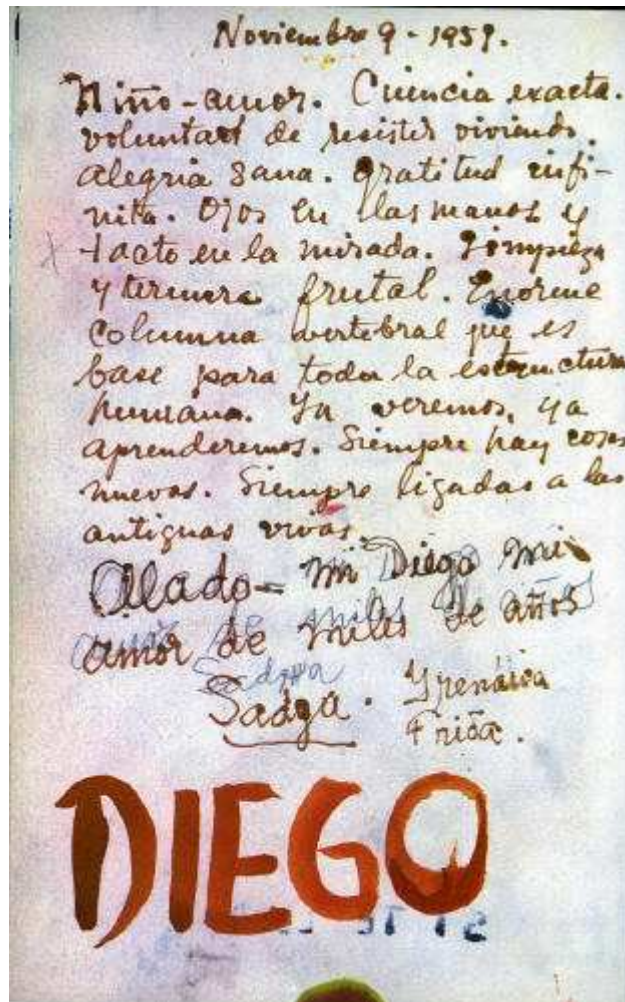 Noviembre 9 - 1951.
Niño-amor. Ciencia exacta.
voluntad de resistir viviendo.
alegria sana. gratitud infi-
nita. Ojos en las manos y
tacto en la mirada. Limpieza
y ternura frutal. Enorme
columna vertebral que es
base para toda la estructura
humana. Ya veremos, ya
aprenderemos. Siempre hay cosas
nuevas. Siempre ligadas a las
antiguas vivas.
Alado - mi Diego mi
amor de miles de años
Sadga
Sadga. Yrenáica
Frida.
DIEGO